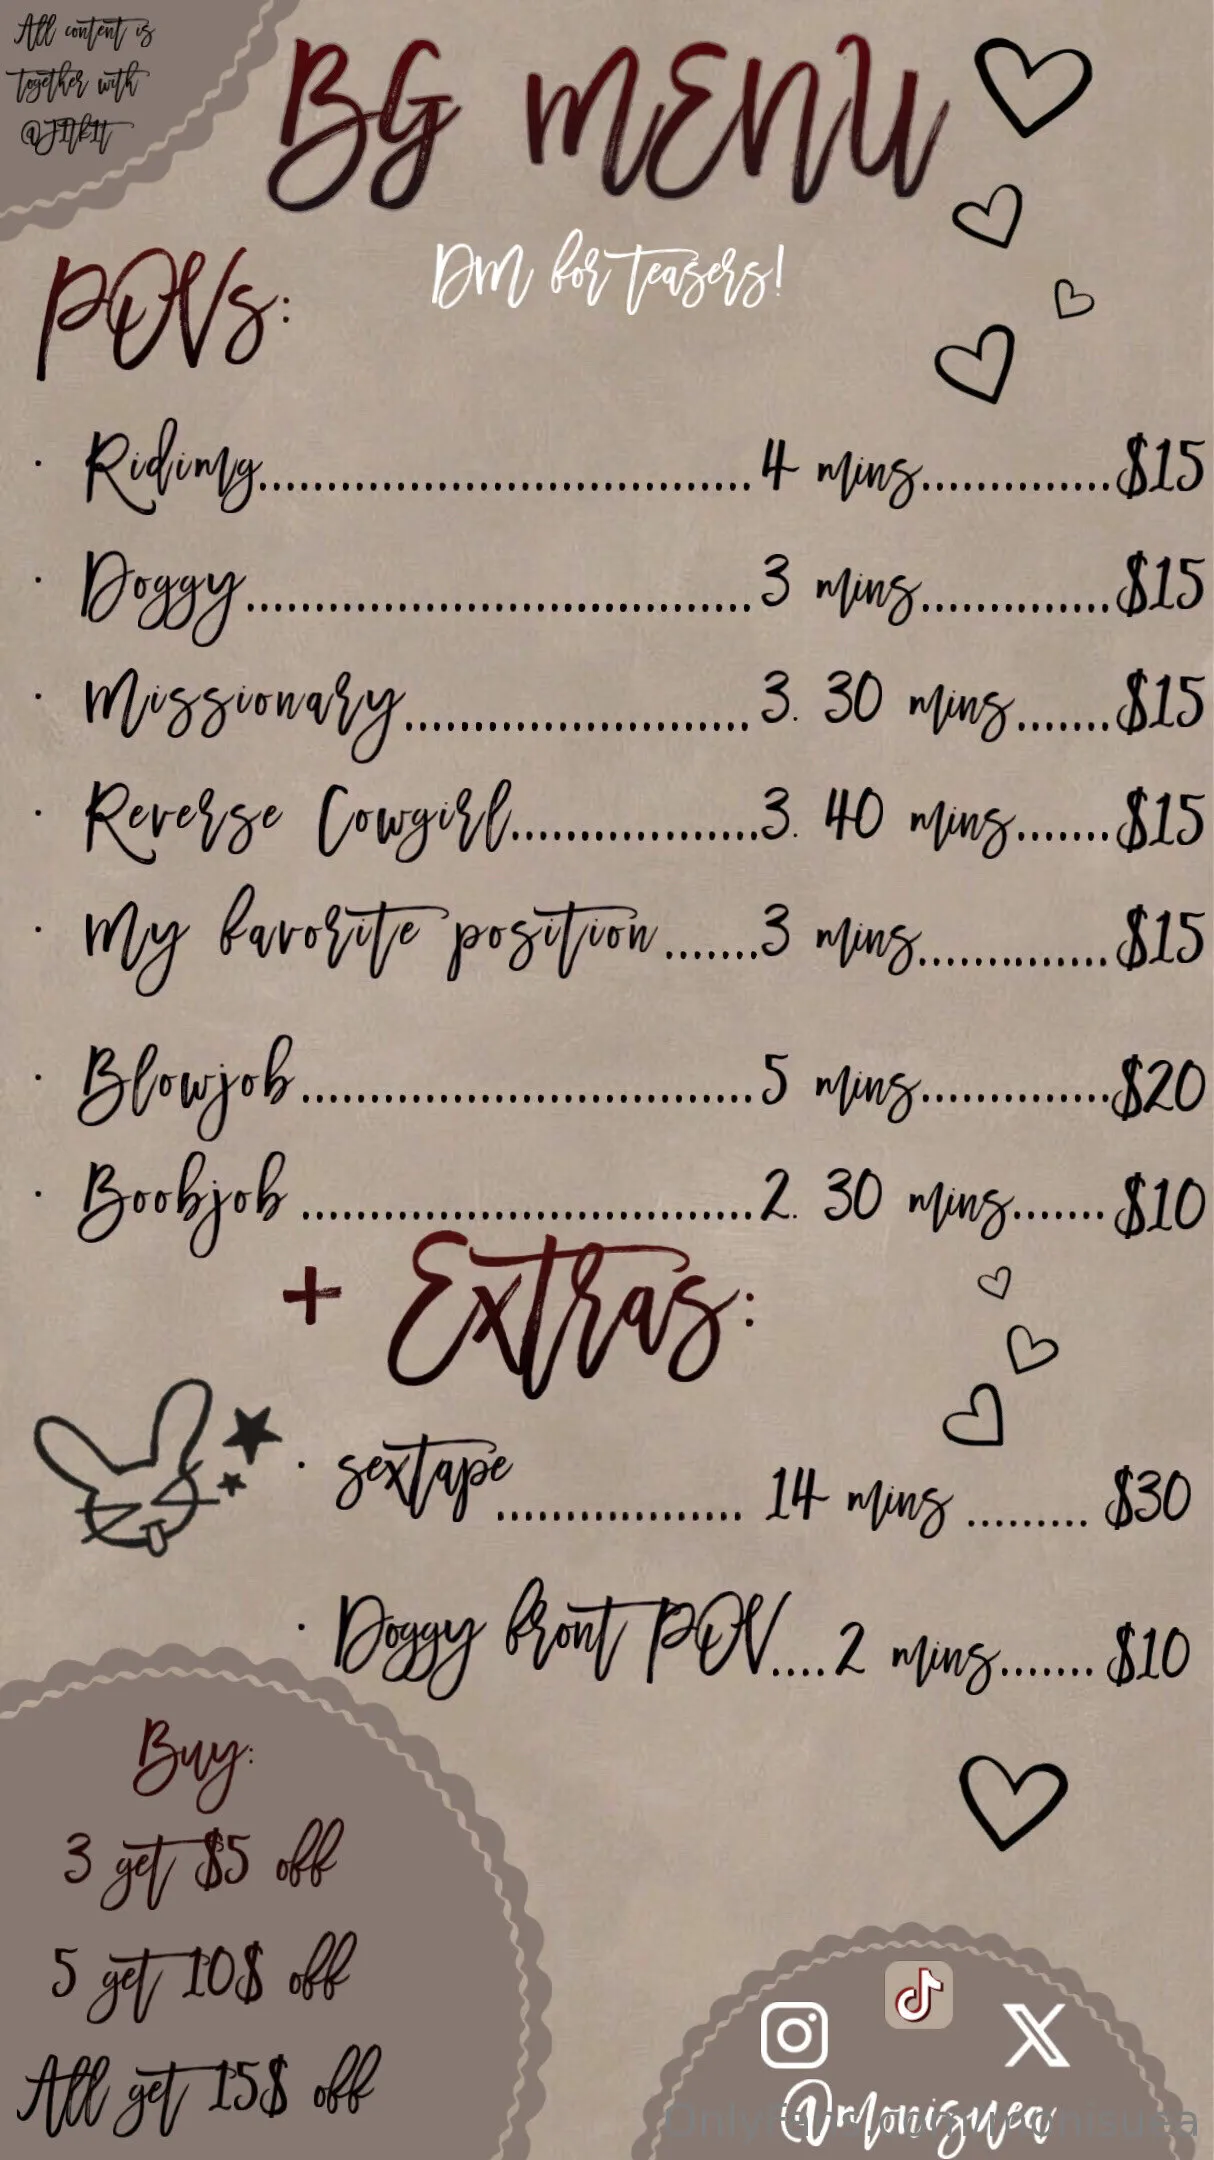 All content is
together with
@J1tk1t
BG MENU
DM for teasers!
POVs:
· Ridimg....................................4 mins..............$15
· Doggy.....................................3 mins..............$15
· Missionary.........................3. 30 mins.......$15
· Reverse Cowgirl..................3. 40 mins.......$15
· My favorite position.......3 mins..............$15
· Blowjob.................................5 mins..............$20
· Boobjob .................................2. 30 mins.......$10
+ Extras:
· sextape.................. 14 mins ......... $30
· Doggy front POV....2 mins.......$10
Buy:
3 get $5 off
5 get 10$ off
All get 15$ off
@monisuea
OnlyFans.com/monisuea